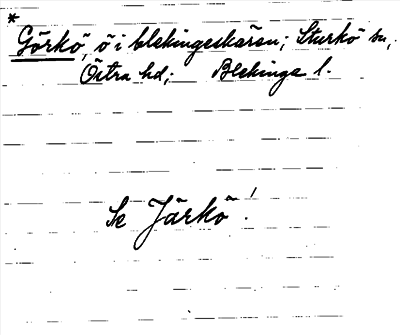 *
Görkö, ö i blekingeskären; Sturkö sn,
Östra hd; Blekinge l.
Se Järkö!